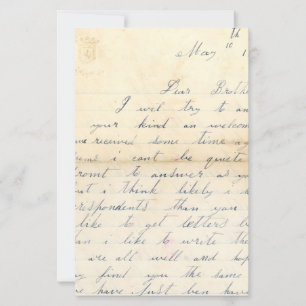 th
May 10 1
Dear Brothe
I will try to an
your kind an welcome
received some time a
i cant be quite
promt to answer as yo
t i think likely i h
respondents than you
like to get letters b
an i like to write the
we are all well and hop
ay find you the same
e have just ben hav